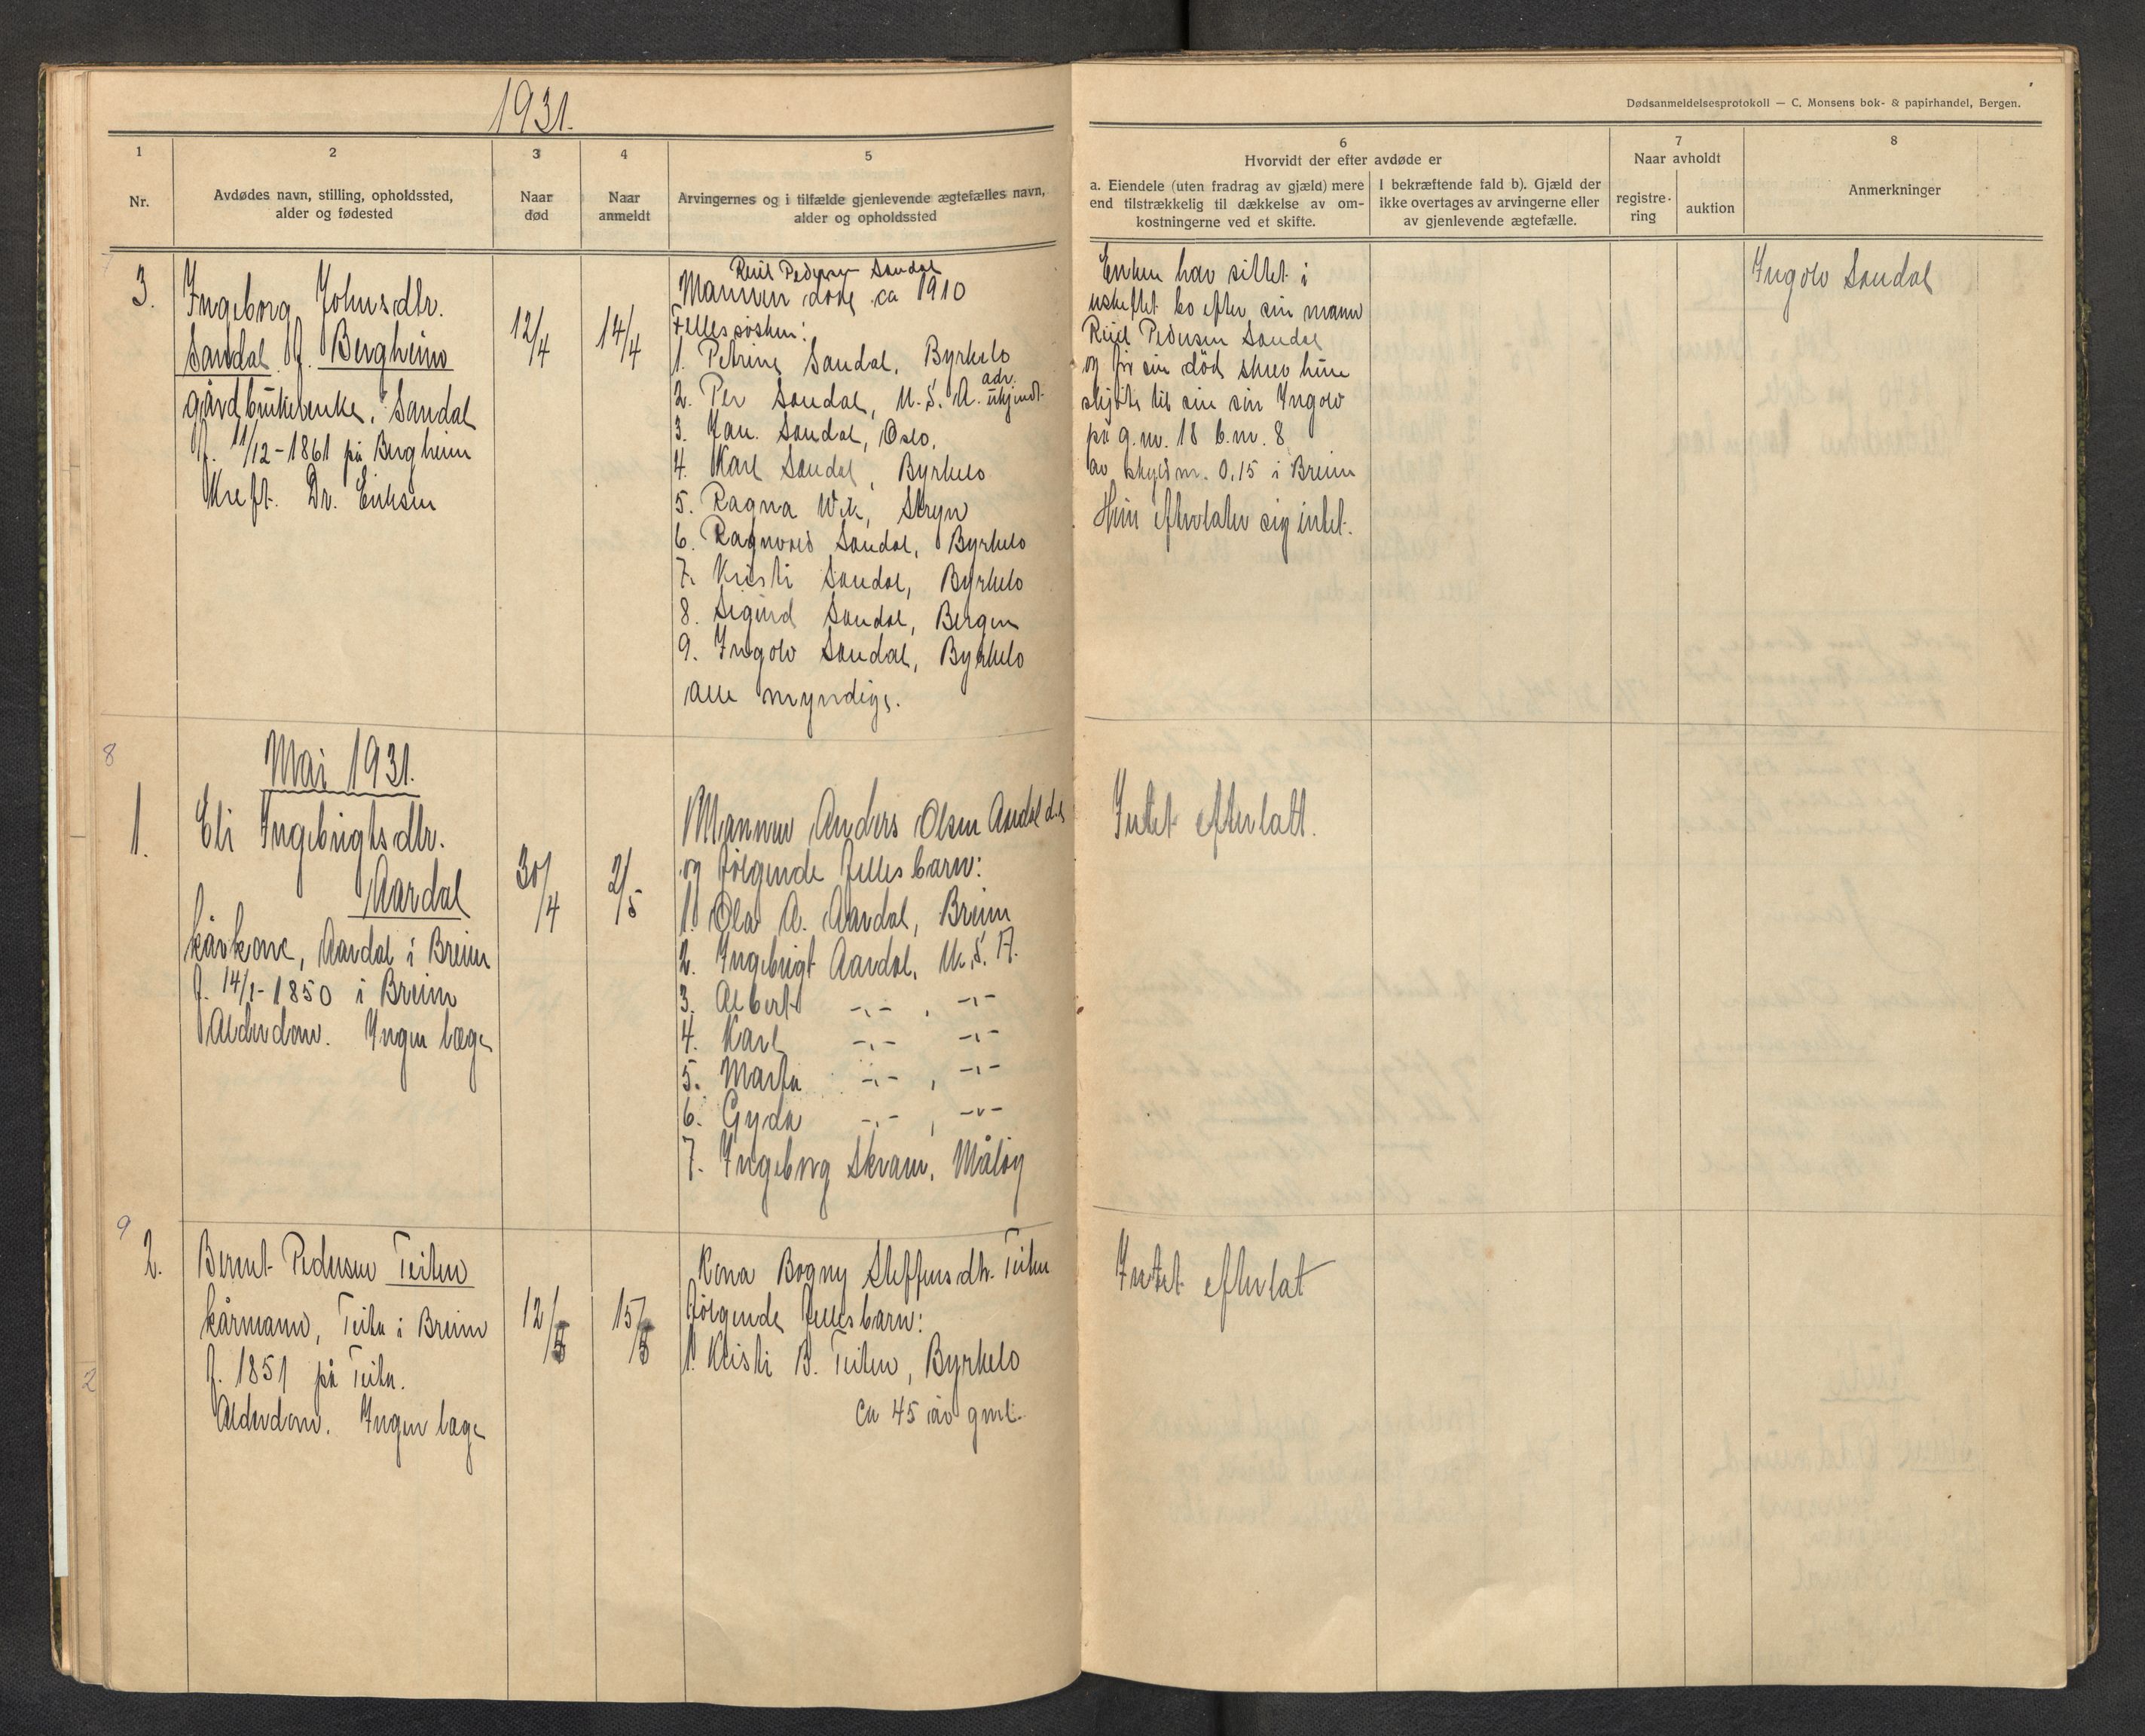 1931.
Dødsanmeldelsesprotokoll — C. Monsens bok- & papirhandel, Bergen.
1
2
3
4
5
6
7
8
Nr.
Avdødes navn, stilling, opholdssted,
alder og fødested
Naar
død
Naar
anmeldt
Arvingernes og i tilfælde gjenlevende ægtefælles navn,
alder og opholdssted
Hvorvidt der efter avdøde er
a. Eiendele (uten fradrag av gjæld) mere
end tilstrækkelig til dækkelse av om-
kostningerne ved et skifte.
I bekræftende fald b). Gjæld der
ikke overtages av arvingerne eller
av gjenlevende ægtefælle.
Naar avholdt
registre-
ring
auktion
Anmerkninger
3.
Ingeborg Johnsdtr.
Sandal f. Bergheim
gårdbrukerenke, Sandal
f. 11/12-1861 på Bergheim
Kreft. Dr. Eriksen
12/4
14/4
Pedersen Sandal
Mannen døde ca 1910
Fellessøsken:
1. Petrine Sandal, Byrkelo
2. Per Sandal, U.S.A. adr. ukjendt
3. Jan. Sandal, Oslo,
4. Karl Sandal, Byrkelo
5. Ragna Wik, Stryn
6. Ragnvald Sandal, Byrkelo
7. Kristi Sandal, Byrkelo
8. Sigurd Sandal, Bergen
9. Ingolv Sandal, Byrkelo
alle myndige.
Enken har sittet i
uskiftet bo efter sin mann
Pedersen Sandal
og før sin død skrev hun
skjøte til sin søn Ingolv
på g.nr. 18 b.nr. 8
av skyldm. 0,15 i Breim
Hun efterlater sig intet.
Ingolv Sandal
8
Mai 1931.
1.
Eli Ingebrigtsdtr.
Aardal
kårkone, Aardal i Breim
f. 14/1-1850 i Breim
Alderdom. Ingen læge
30/4
2/5
Mannen Anders Olsen Aardal
og følgende fellesbarn:
1. Ola A. Aardal, Breim
2. Ingebrigt Aardal, U.S.A.
3. Albert -"- , -"-
4. Karl -"- -"-
5. Marta -"- , -"-
6. Gyda -"- , -"-
7. Ingeborg Skram, Måløy
Intet efterlatt.
9
2.
Bernt Pedersen Teiten
kårmann, Teita i Breim
f. 1851 på Teita.
Alderdom. Ingen læge
12/5
15/5
Kona Bogny Steffensdtr. Teiten
følgende fellesbarn:
1. Kristi B. Teiten, Byrkelo
ca 45 år gml.
Intet efterlat
2